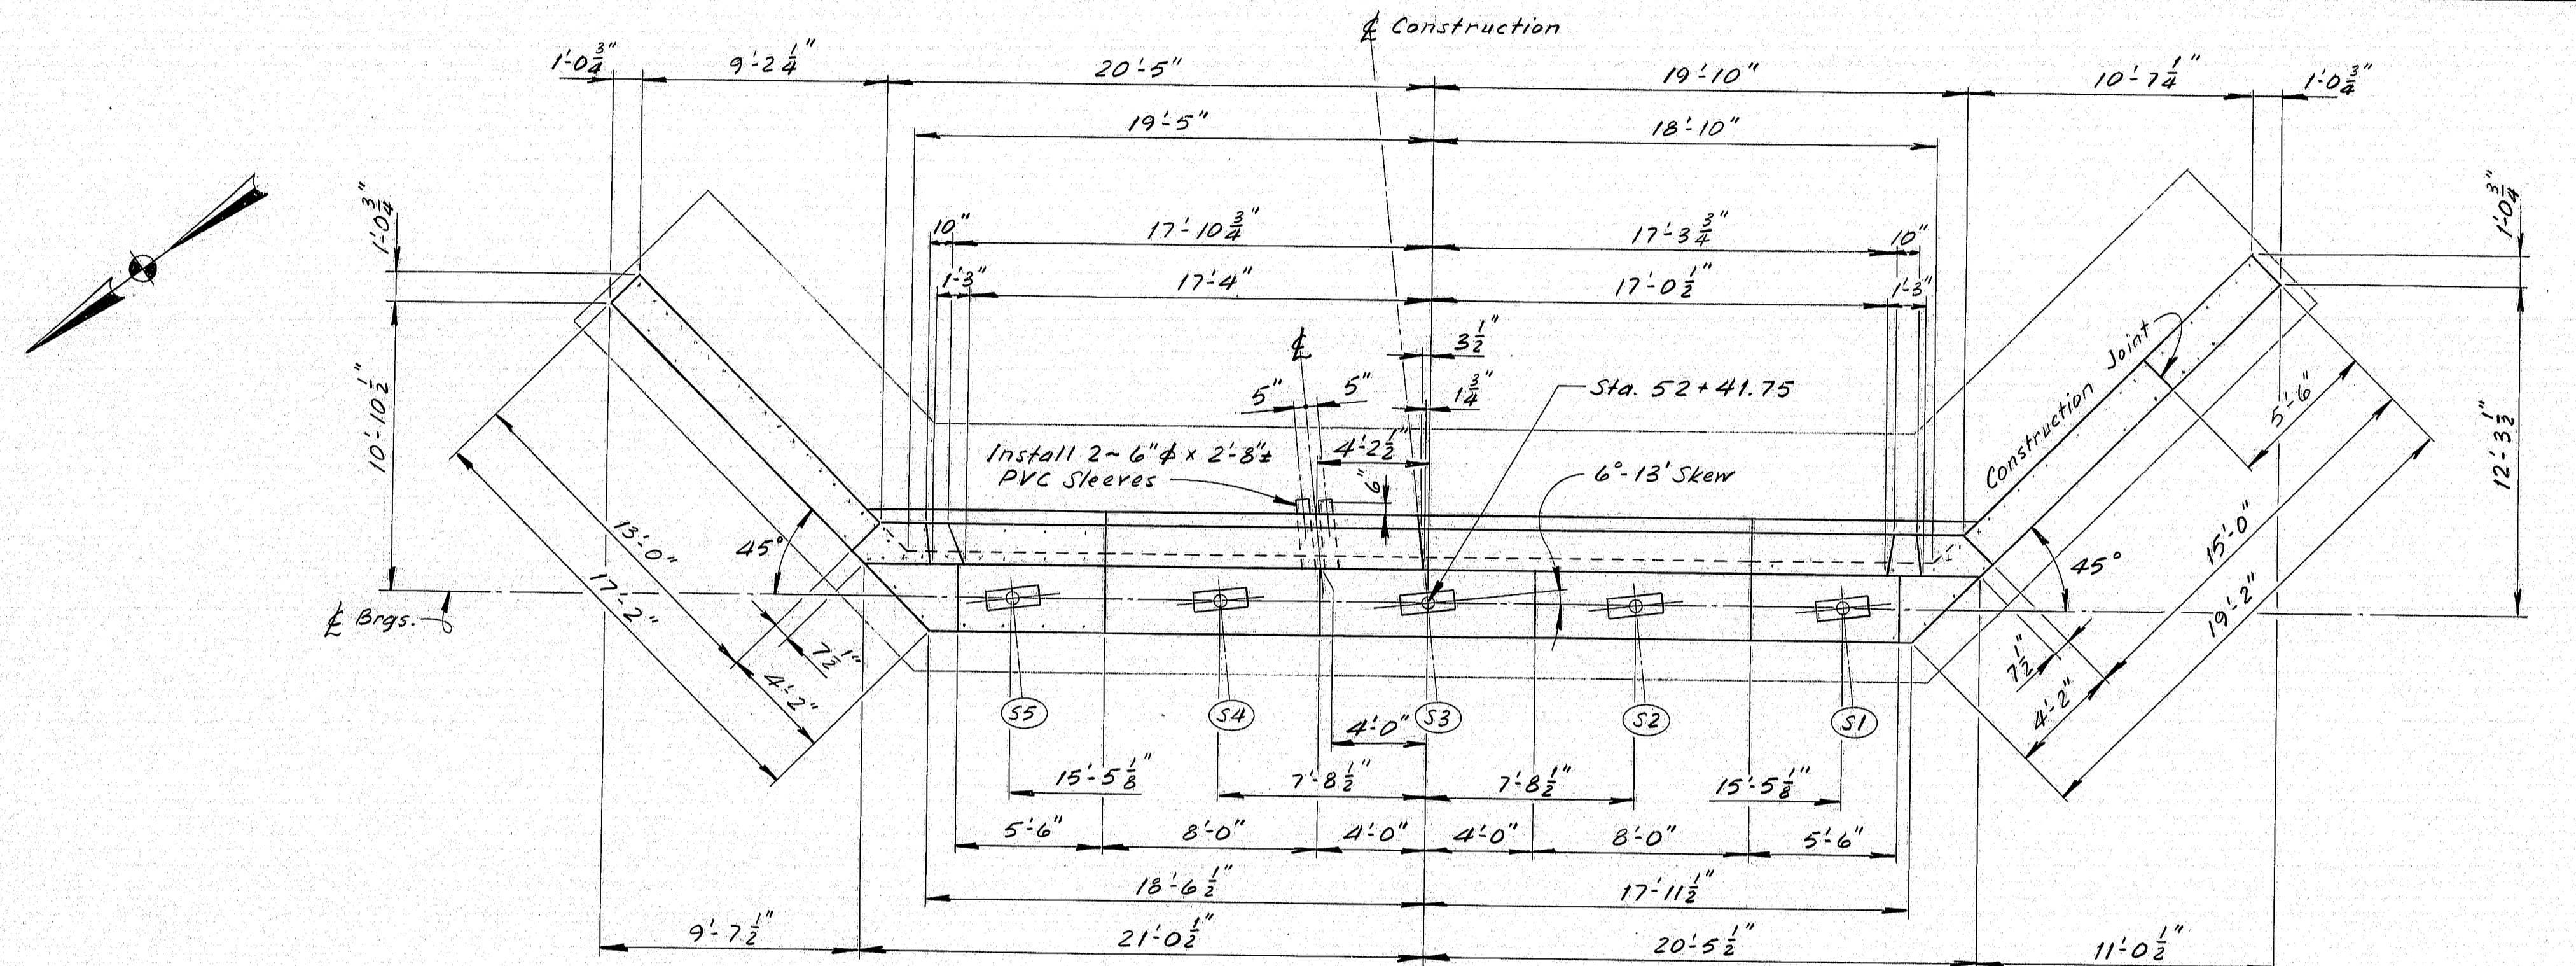 ℄ Construction
1'-0 3/4"
9'-2 1/4"
20'-5"
19'-10"
10'-7 1/4"
1'-0 3/4"
19'-5"
18'-10"
1'-0 3/4"
10"
17'-10 3/4"
17'-3 3/4"
10"
1'-0 3/4"
1'-3"
17'-4"
17'-0 1/2"
1'-3"
℄
3 1/2"
5"
5"
1 3/4"
Sta. 52+41.75
Construction Joint
5'-6"
10'-10 1/2"
12'-3 1/2"
Install 2~ 6"ϕ x 2'-8"±
PVC Sleeves
4'-2 1/2"
6"
6°-13' Skew
13'-0"
17'-2"
45°
45°
15'-0"
19'-2"
℄ Brgs.
7 1/2"
4'-2"
7 1/2"
4'-2"
S5
S4
S3
S2
S1
4'-0"
15'-5 1/8"
7'-8 1/2"
7'-8 1/2"
15'-5 1/8"
5'-6"
8'-0"
4'-0"
4'-0"
8'-0"
5'-6"
18'-6 1/2"
17'-11 1/2"
9'-7 1/2"
21'-0 1/2"
20'-5 1/2"
11'-0 1/2"